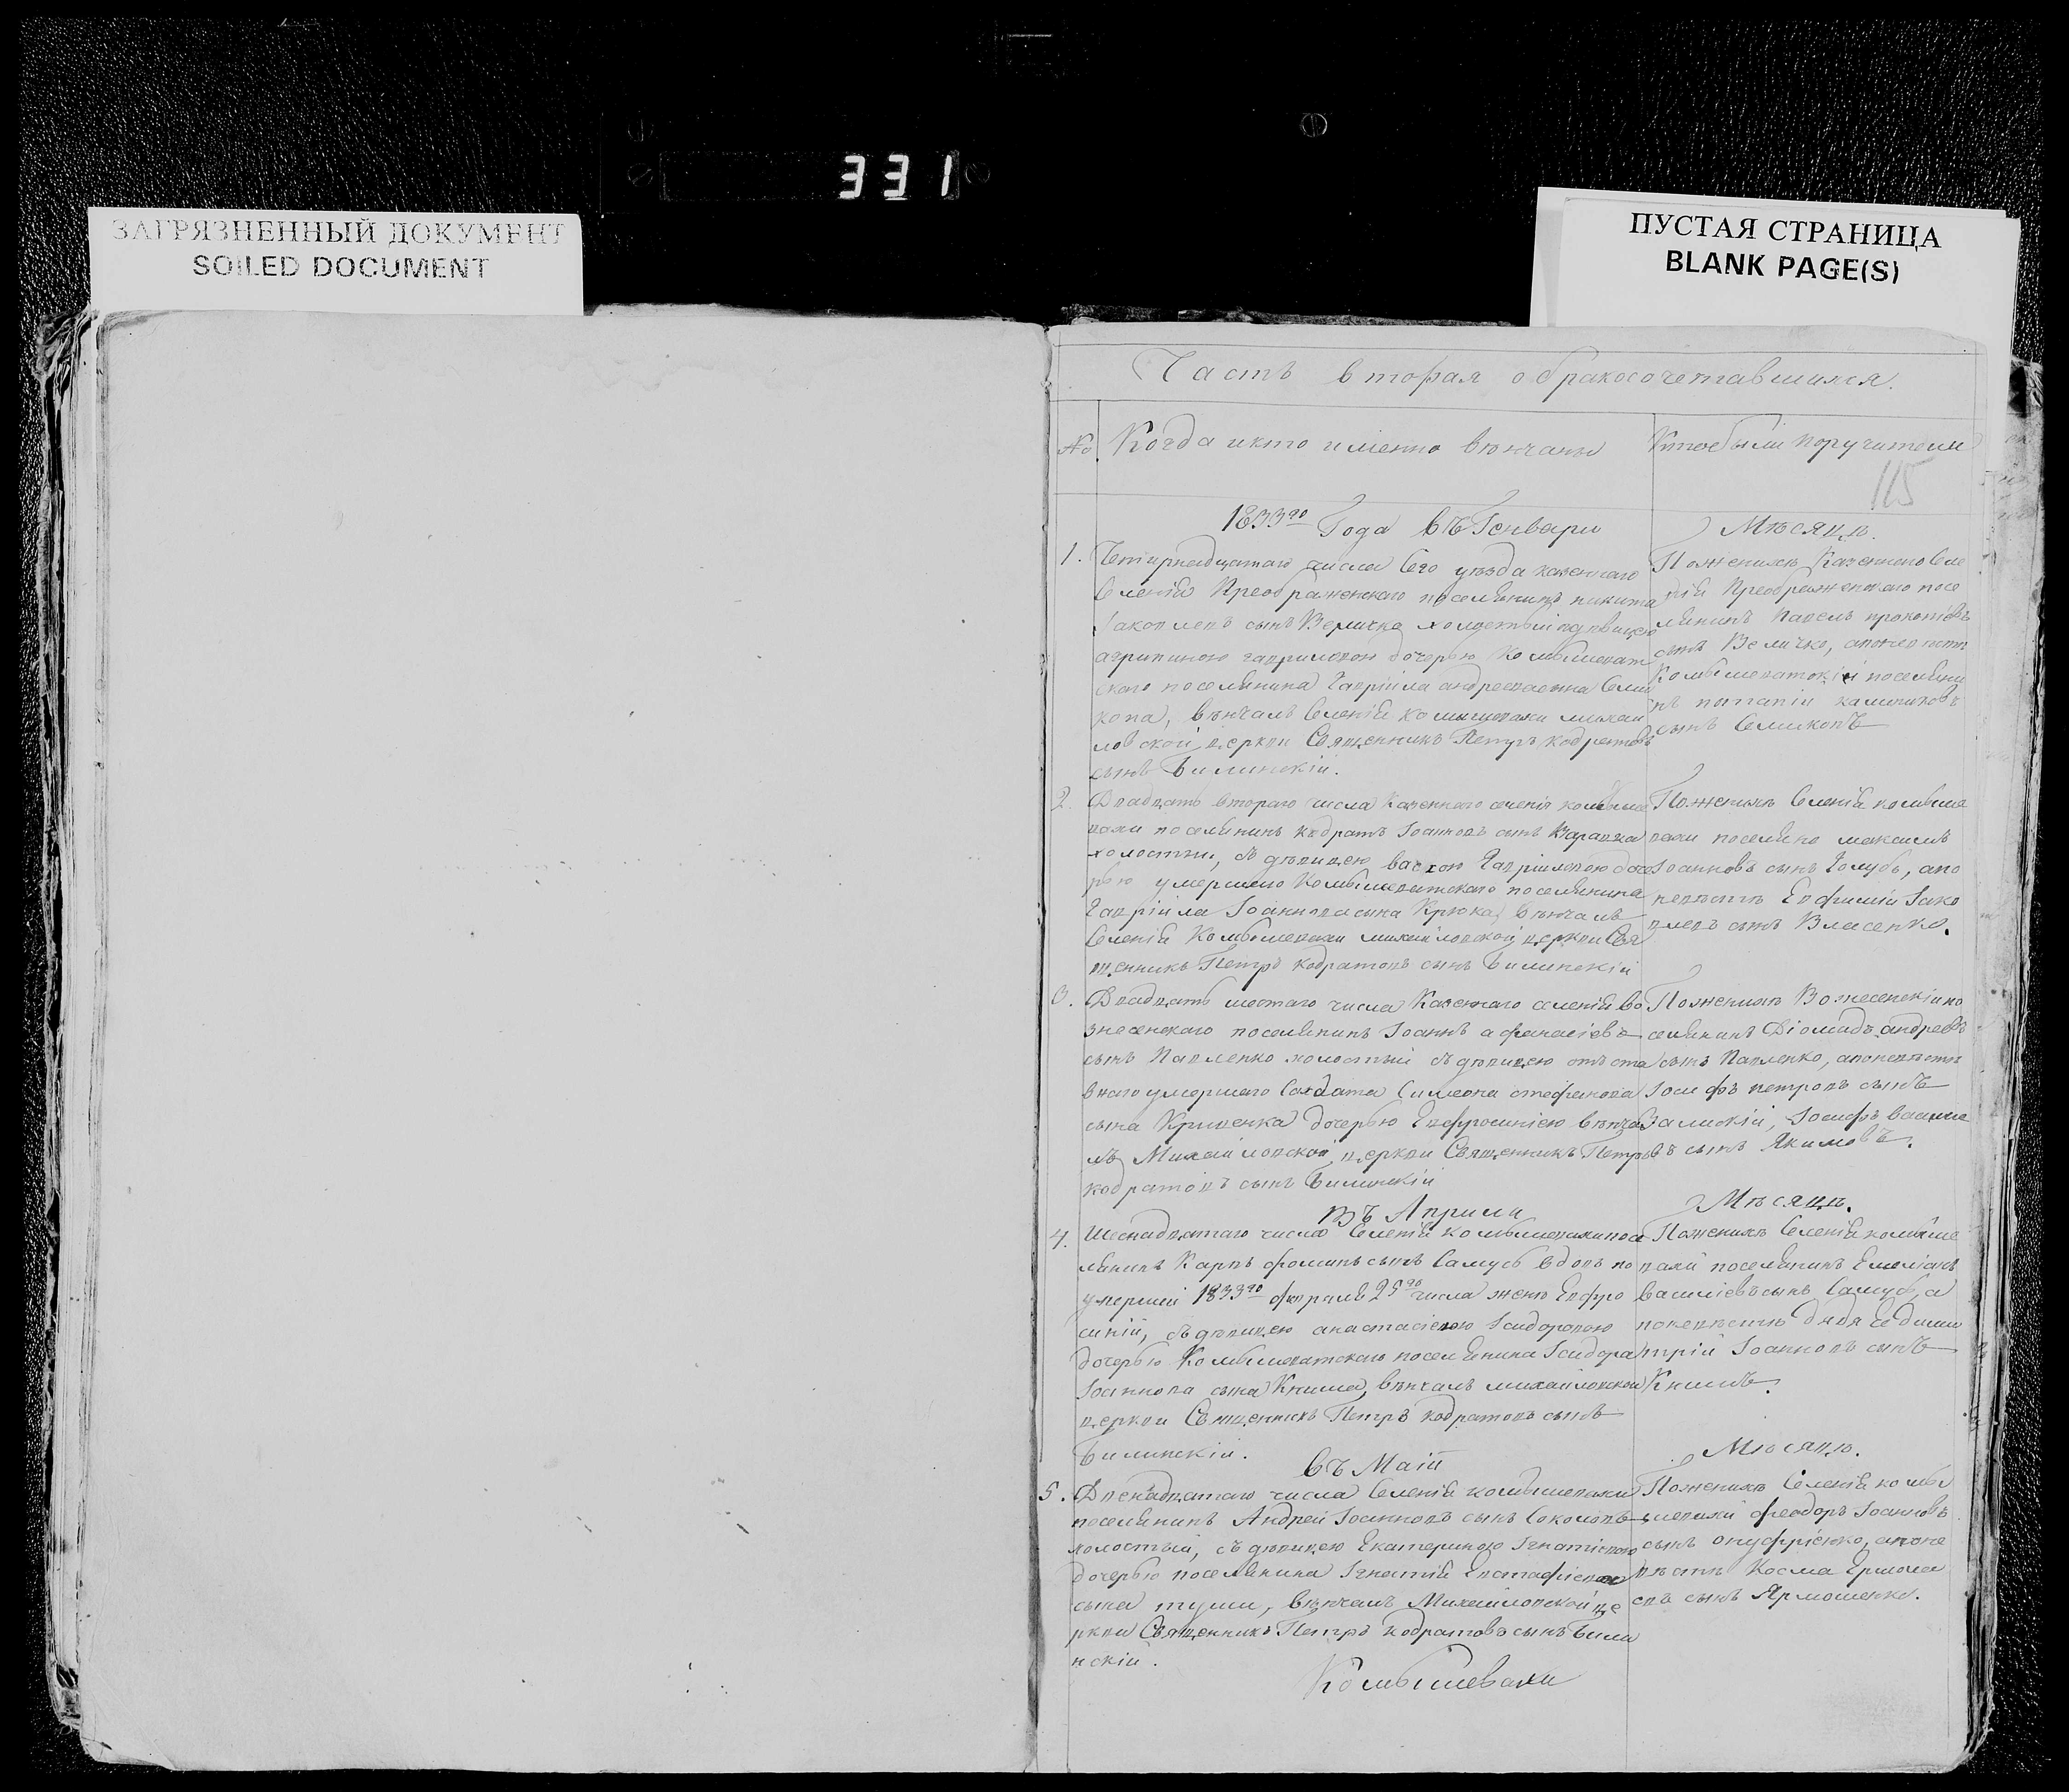 331
ЗАГРЯЗНЕННЫЙ ДОКУМЕНТ
SOILED DOCUMENT
ПУСТАЯ СТРАНИЦА
BLANK PAGE(S)
Часть вторая обракосочетавшихся.
№ Когда икто именно вѣнчаны
Ктобыли поручители
115
1833го Года въ Генвари
Мѣсяцѣ.
1. Четырнадцатаго числа Сего уѣзда казеннаго
Селенія Преображенскаго поселянинъ никита
Іаковлевъ сынъ Величко холостый здѣвицею
агрипиною гавриловою дочерью Комышеват
скаго поселянина Гавріила андреева сына Сели
кова, вѣнчалъ Селенія комышевахи михаи
ловской церкви Священникъ Петръ кодратовъ
сынъ Билинскій.
Поженихѣ Казеннаго Селе
нія Преображенскаго посе
лянинъ Павелъ прокопіевъ
сынъ Величко, апоневѣстѣ
Комышеватскій поселяни
нъ
сынъ Селиковъ
2. Двадцать втораго числа Казеннаго селенія комыше
вахи поселянинъ кодратъ Іоанновъ сынъ
холостый, съ дѣвицею вассою Гавріиловою доче
рью умершего Комышеватскаго поселянина
Гавріила Іоаннова сына Крюка, вѣнчалъ
Селенія Комышевахи михаиловской церкви Свя
щенникъ Петръ кодратовъ сынъ Билинскій
Поженихѣ Селенія комыше
вахи поселяне максимъ
Іоанновъ сынъ Голубъ, апо
невѣстѣ Евфимій Іако
влевъ сынъ Власенко.
3. Двадцать шестаго числа Казеннаго селенія во
знесенскаго поселянинъ Іоаннъ афанасіевъ
сынъ Павленко холостый съ дѣвицею отъ ста
внаго умершаго Солдата Симеона стефанова
сына Кривенка дочерью Евфросиніею вѣнча
лъ Михаиловской церкви Священникъ Петръ
кодратовъ сынъ Билинскій
Поженихѣ Вознесенскій по
селянинъ Діомидъ андреевъ
сынъ Павленко, апоневѣстѣ
Іосифъ петровъ сынъ
Іосифъ василіе
въ сынъ Якимовъ.
Въ Априли
Мѣсяцѣ.
4. Шеснадцатаго числа Селенія комышевахи посе
лянинъ Карпъ фоминъ сынъ Самусъ вдовъ по
умершей 1833го февраля 25го числа женѣ Евфро
синіи, съ дѣвицею анастасіею Ісидоровою
дочерью Комышеватскаго поселянина Ісидора
Іоаннова сына Книша, вѣнчалъ михаиловской
церкви Священникъ Петръ кодратовъ сынъ
Билинскій.
Поженихѣ Селенія комыше
вахи поселянинъ Емеліанъ
Василіевъ сынъ Самусъ, а
поневѣстѣ дядя ее дими
трій Іоанновъ сынъ
Книшъ.
Въ Маіи
Мѣсяцѣ.
5. Двенадцатаго числа Селенія комышевахи
поселянинъ Андрей Іоанновъ сынъ Соколовъ
холостый, съ дѣвицею Екатериною Ігнатіевою
дочерью поселянина Ігнатія Евстафіева
сына тушы, вѣнчалъ Михаиловской це
ркви Священникъ Петръ кодратовъ сынъ Били
нскій.
Поженихѣ Селенія комы
шевахи феодоръ Іоанновъ
сынъ онуфріенко, апоне
вѣстѣ Косма Ермола
евъ сынъ Ярмошенко.
Комышевахи